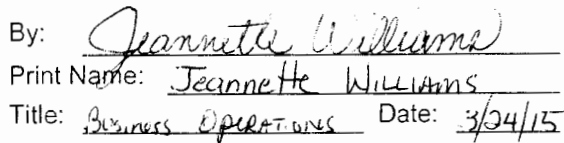 By: Jeannette Williams
Print Name: Jeannette Williams
Title: Business Operations Date: 3/24/15